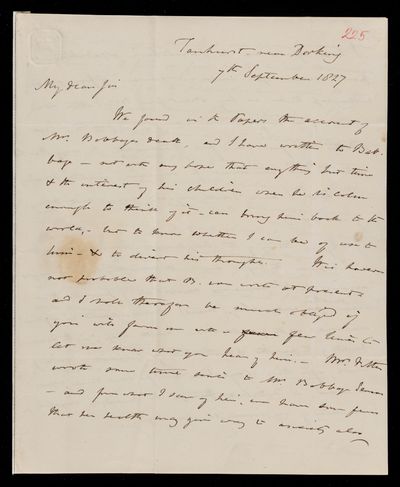 225
Tanhurst near Dorking
7th September 1827
My dear Sir
We found in the Papers the account of
Mrs. Babbages death, and I have written to Bab-
bage – not with any hope that anything but time
& the interest of his children when he is calm
enough to think of it – can bring him back to the
world, – but to know whether I can be of use to
him – & to divert his thoughts. It is however
not probable that B. can write at present
and I shall therefore be much obliged if
you will favour me with a few lines to
let me know what you hear of him. – Mrs.
wrote some time since to Mrs Babbage Senr
– and from what I saw of her, we have some fears
that her health may give way to anxiety also